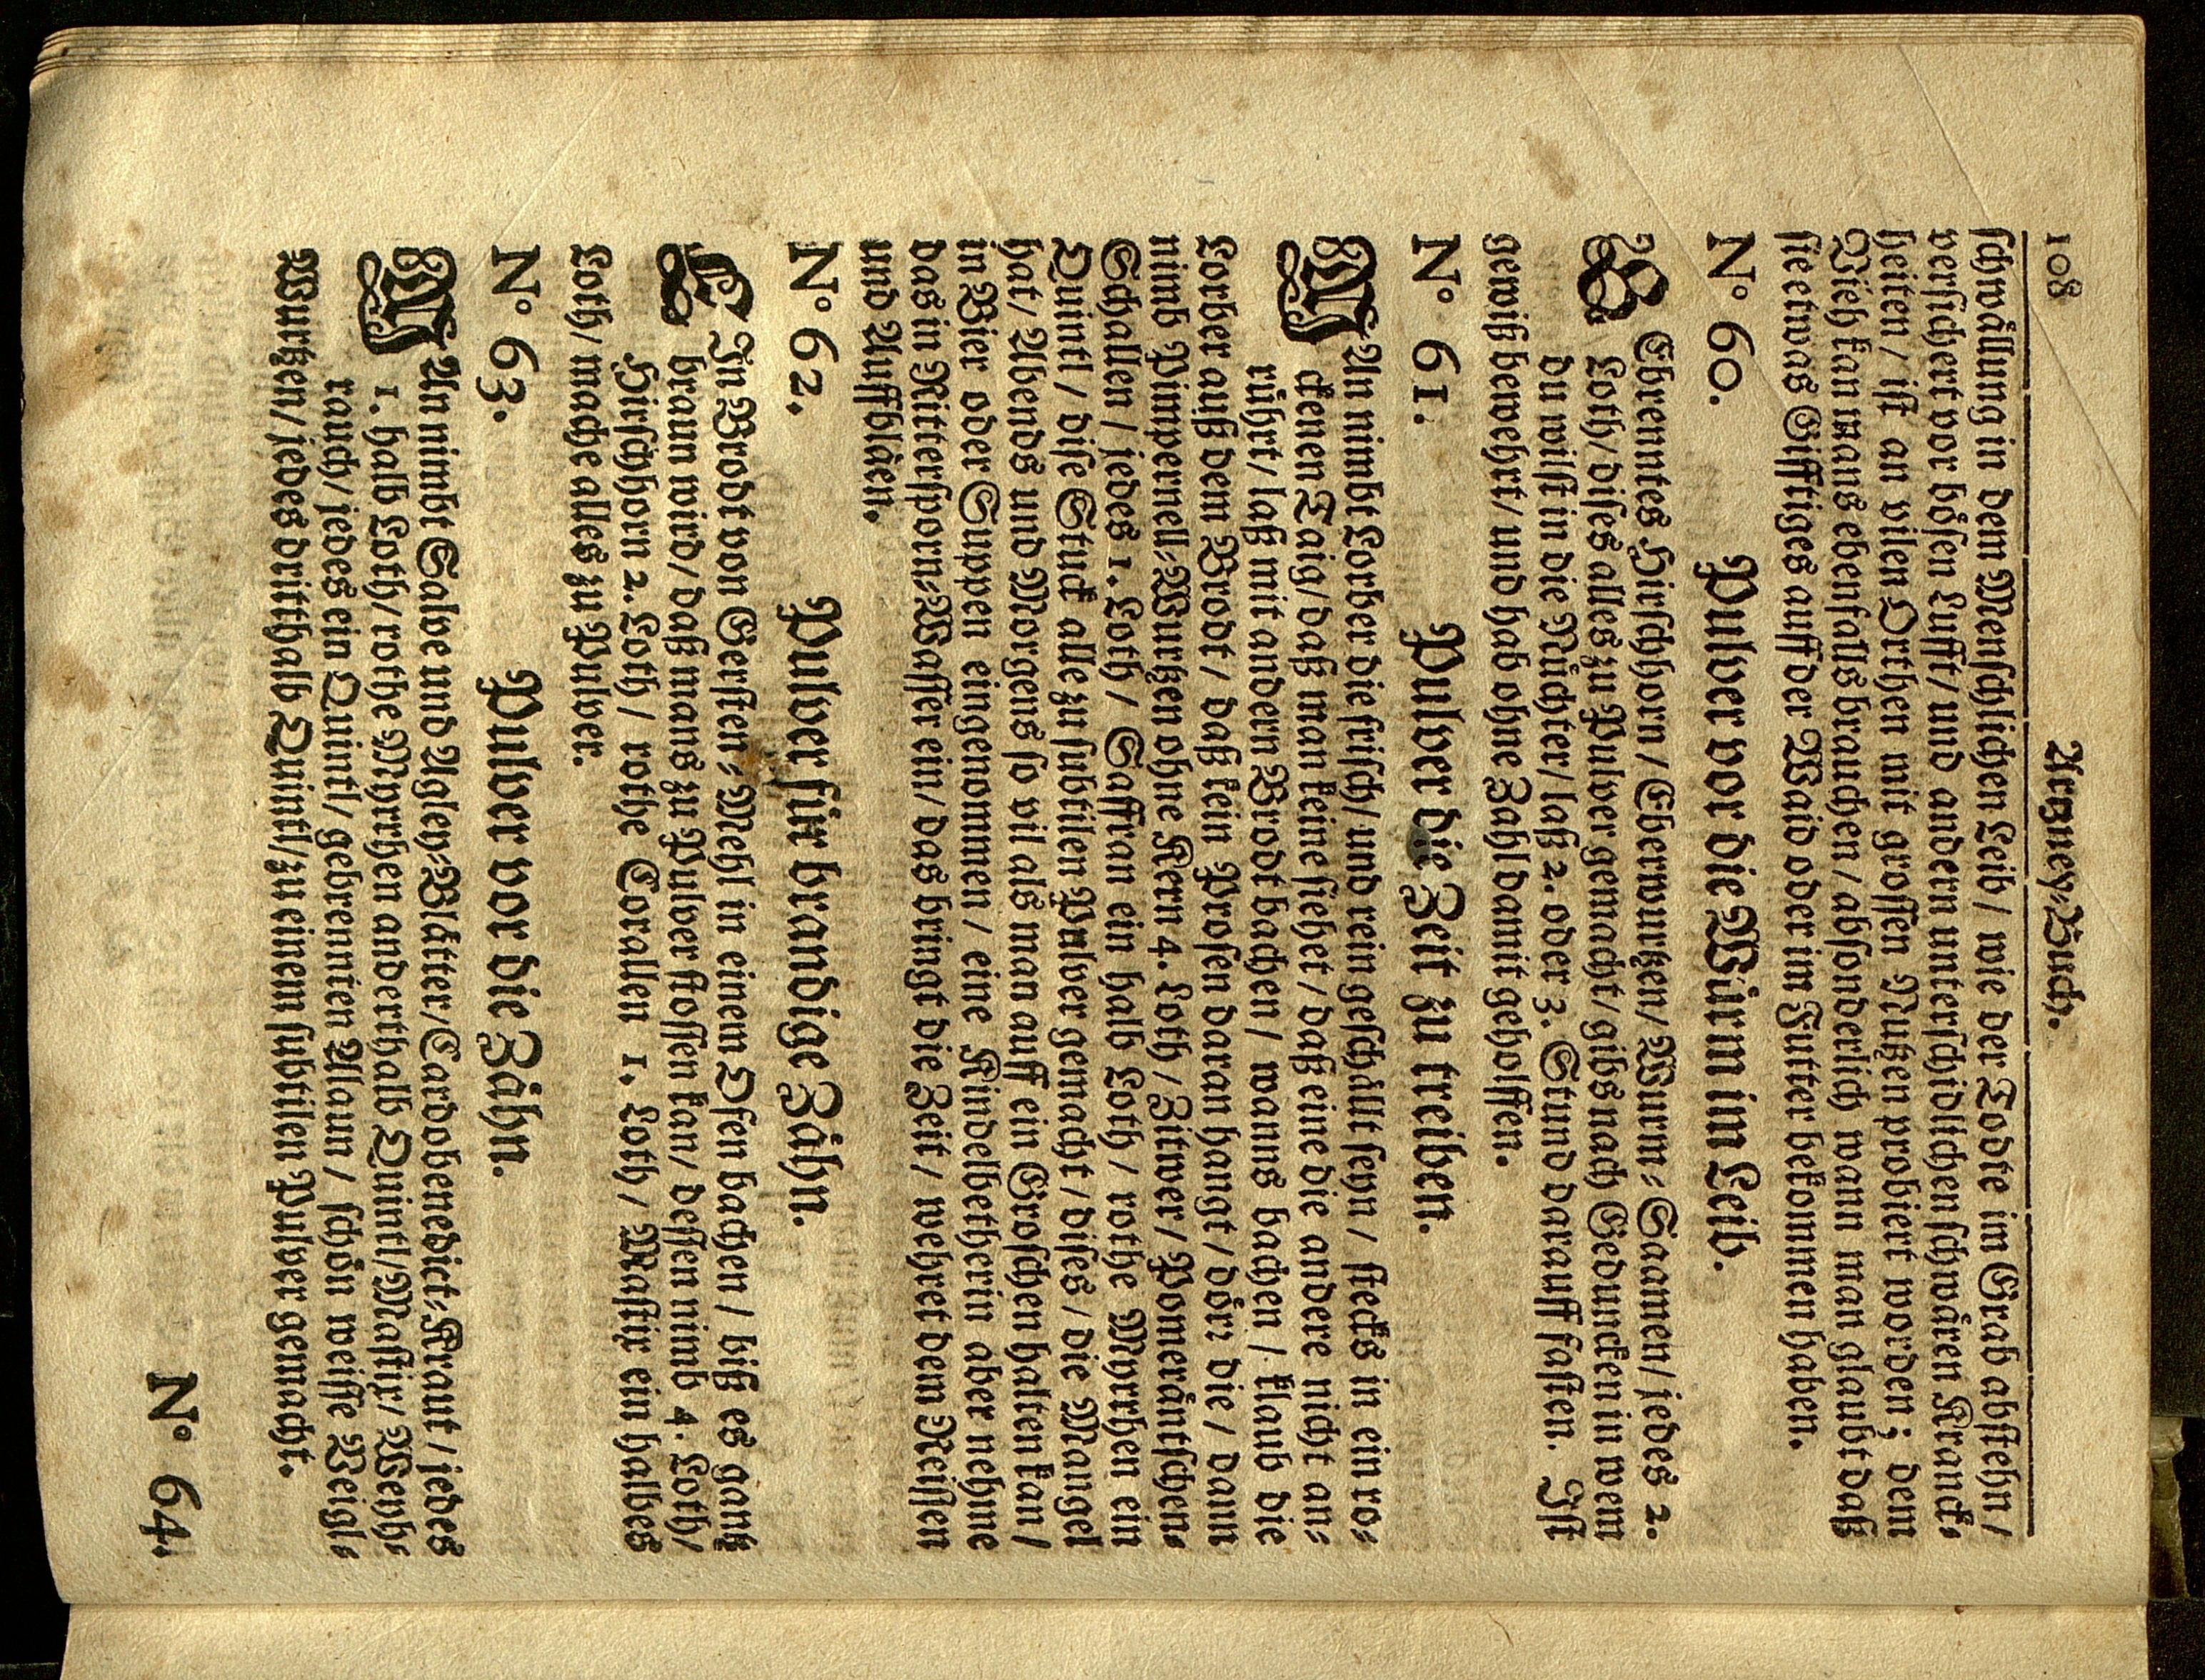 108 Artzney-Buch.
schwällung in dem Menschlichen Leib / wie der Todte im Grab abstehn /
versichert vor bösen Lufft / und andern unterschidlichen schwären Kranck-
heiten / ist an vilen Orthen mit grossen Nutzen probiert worden ; dem
Vieh kan mans ebenfalls brauchen / absonderlich wann man glaubt daß
sie etwas Gifftiges auff der Waid oder im Futter bekommen haben.
N° 60. Pulver vor die Würm im Leib.
GEbrenntes Hirschhorn / Eberwurtzen / Wurm-Saamen / jedes 2.
Loth / dises alles zu Pulver gemacht / gibs nach Geduncken in wem
du wilst in die Nüchter / laß 2. oder 3. Stund darauff fasten. Ist
gewiß bewehrt / und hab ohne Zahl damit geholffen.
N° 61. Pulver die Zeit zu treiben.
MAn nimbt Lorber die frisch / und rein geschällt seyn / stecks in ein ro-
ckenen Taig / daß man keine siehet / daß eine die andere nicht an-
rührt / laß mit andern Brodt bachen / wanns bachen / klaub die
Lorber auß dem Brodt / daß kein Brosen daran hangt / dörr die / dann
nimb Pimpernell-Wurtzen ohne Kern 4. Loth / Zitwer / Pomeräntschen-
Schallen / jedes 1. Loth / Saffran ein halb Loth / rothe Myrrhen ein
Quintl / dise Stuck alle zu subtilen Pulver gemacht / dises / die Mangel
hat / Abends und Morgens so vil als man auff ein Groschen halten kan /
in Bier oder Suppen eingenommen / eine Kindelbetherin aber nehme
das in Rittersporn-Wasser ein / das bringt die Zeit / wehret dem Reissen
und Auffbläen.
N° 62. Pulver für brandige Zähn.
EIn Brodt von Gersten-Mehl in einem Ofen bachen / biß es gantz
braun wird / daß mans zu Pulver stossen kan / dessen nimb 4. Loth /
Hirschhorn 2. Loth / rothe Corallen 1. Loth / Mastix ein halbes
Loth / mache alles zu Pulver.
N° 63. Pulver vor die Zähn.
MAn nimbt Salve und Agley-Blätter / Cardobenedict-Kraut / jedes
1. halb Loth / rothe Myrrhen anderthalb Quintl / Mastix / Weyh-
rauch / jedes ein Quintl / gebrennten Alaun / schön weisse Veigl-
Wurtzen / jedes dritthalb Quintl / zu einem subtilen Pulver gemacht.
N° 64.